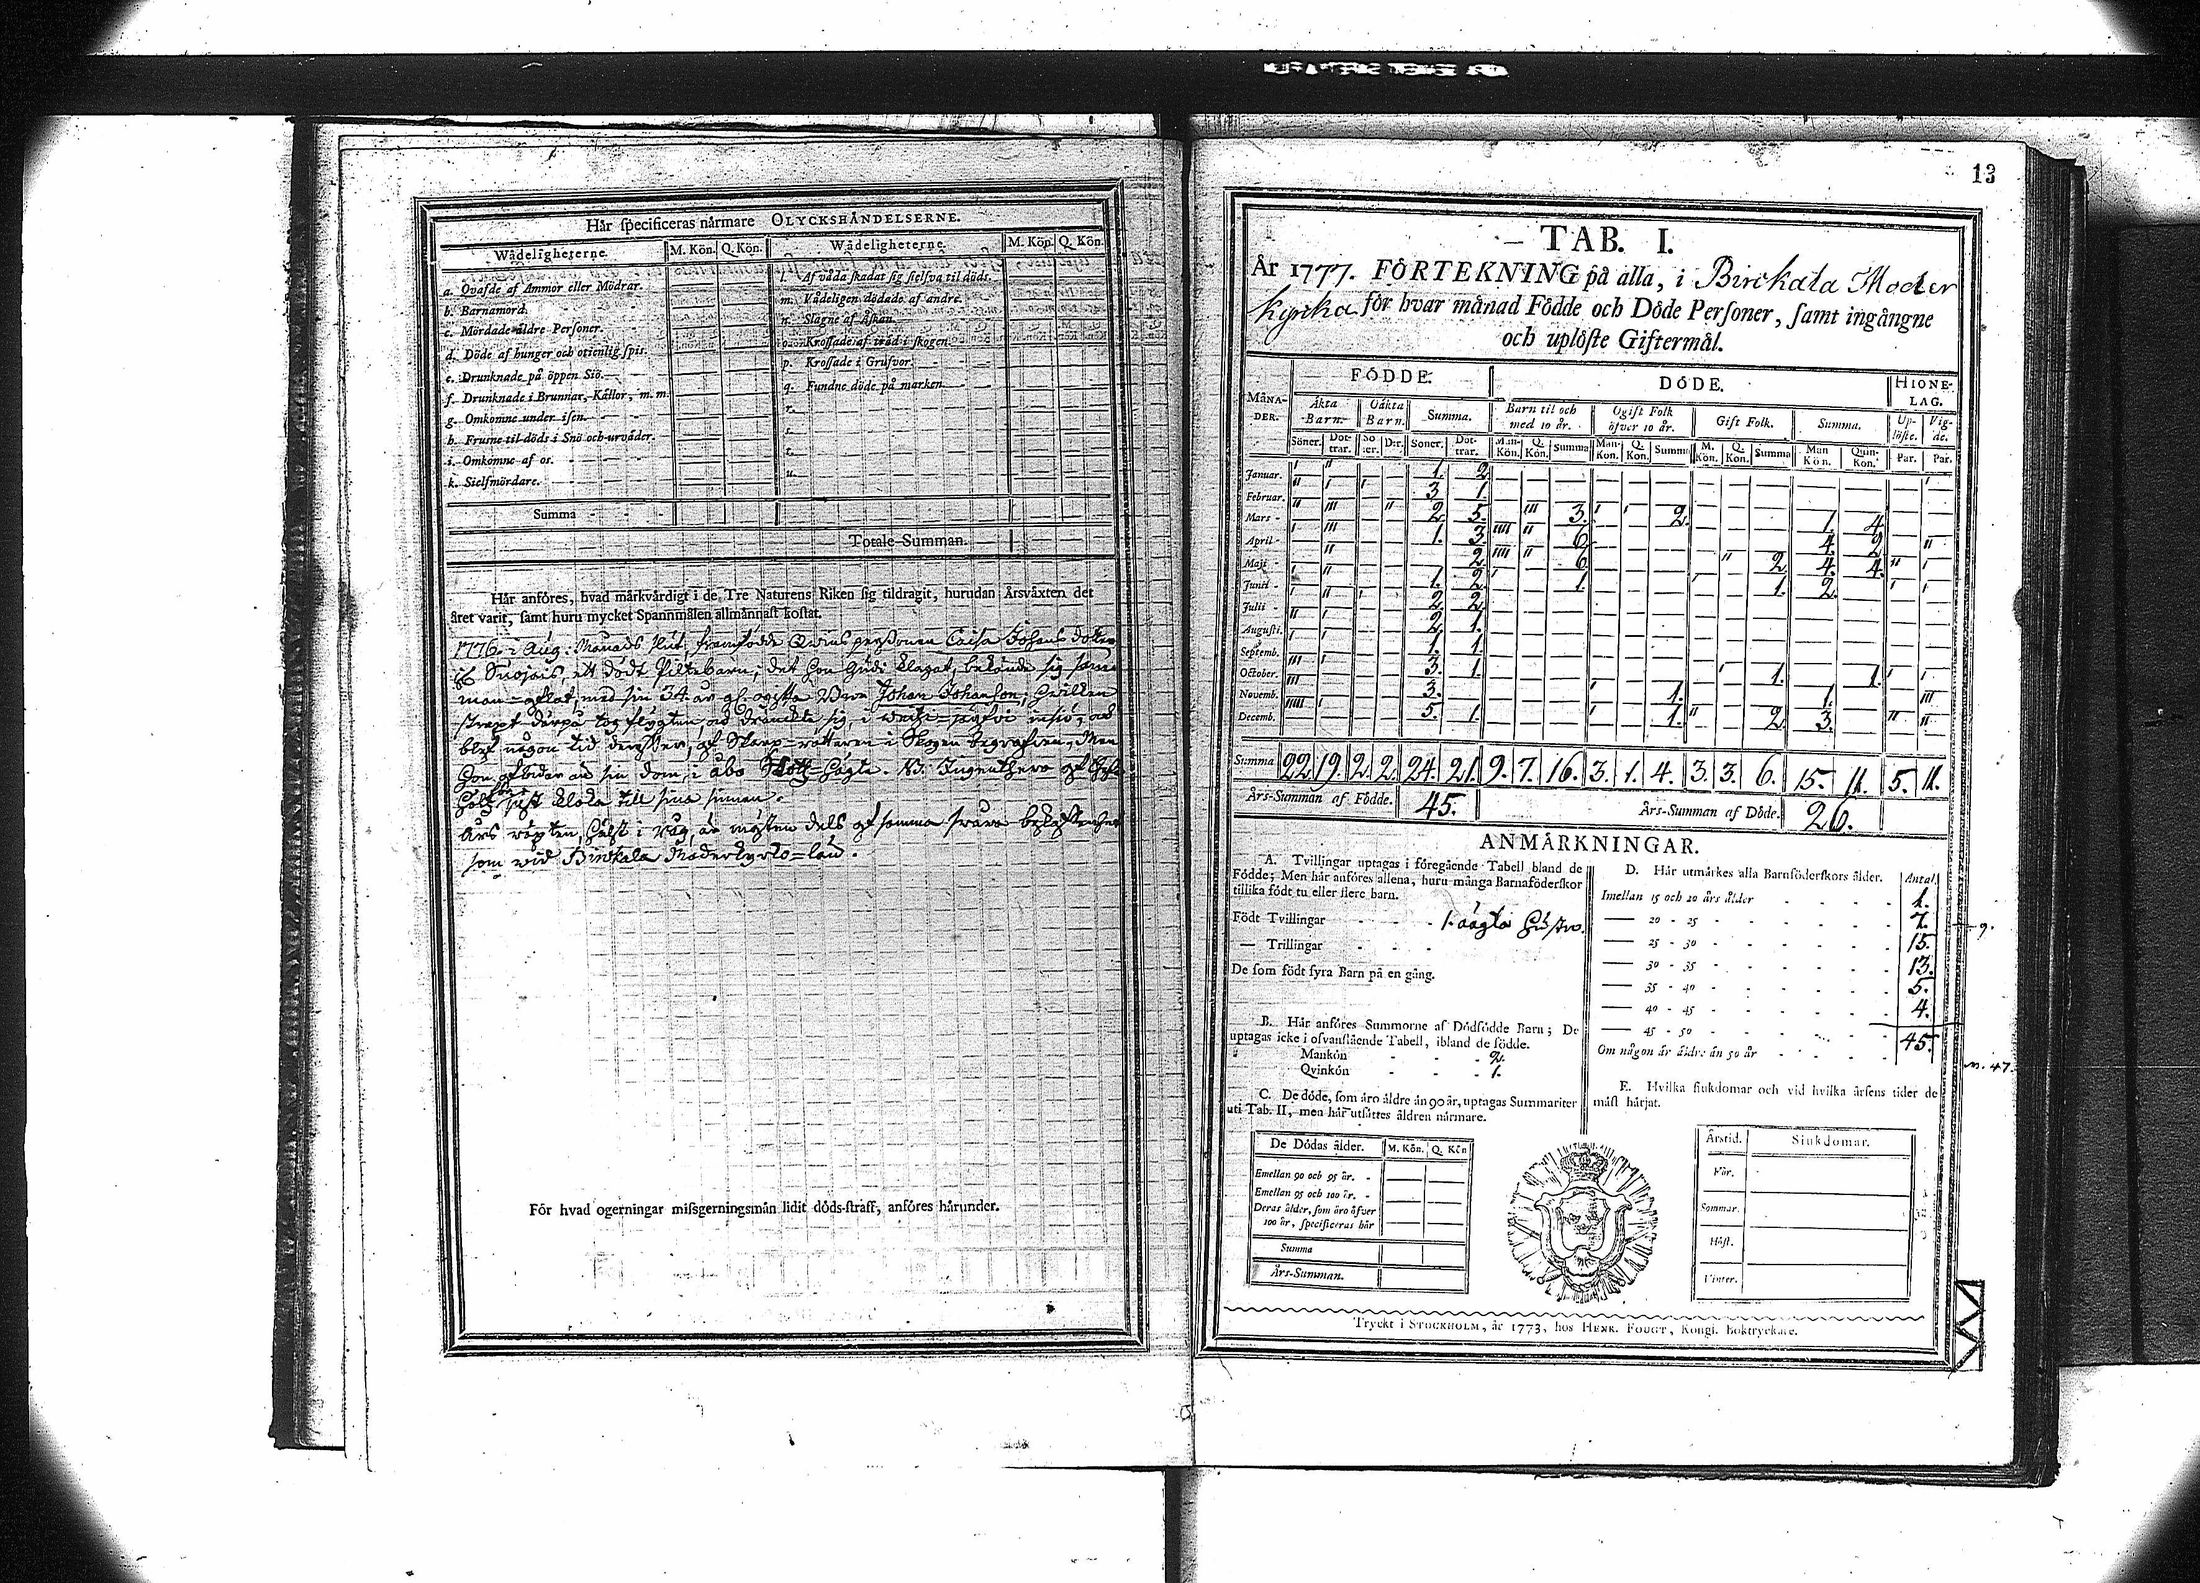 Här specificeras närmare OLYCKSHÄNDELSERNE.
Wådeligheterne. M. Kön. Q. Kön. Wådeligheterne. M. Kön. Q. Kön.
a. Qvafde af Ammor eller Mödrar.
b. Barnamord.
c. Mördade äldre Personer.
d. Döde af hunger och otienlig spis.
e. Drunknade på öppen Siö.
f. Drunknade i Brunnar, Källor, m. m.
g. Omkomne under isen.
h. Frusne til döds i Snö och urväder.
i. Omkomne af os.
k. Sielfmördare.
l. Af våda skadat sig sielfva til döds.
m. Vådeligen dödade af andre.
n. Slagne af Åskan.
o. Krossade af träd i skogen.
p. Krossade i Grufvor.
q. Fundne döde på marken.
r.
s.
t.
u.
Summa
Totale Summan.
Här anföres, hvad märkvärdigt i de Tre Naturens Riken sig tildragit, hurudan Årsväxten det
året varit, samt huru mycket Spannmålen allmännast kostat.
1776. i Aug. Månads slut, framfödde Qvinspersonen Caisa Johans dotter
ett dödt Piltebarn; det hon
man aflat, med sin 34 år Johan Johansson, hvilken
tog flygten, och dränckte sig, i
blef någon tid derefter, af i Skogen begrafven. Men
Hon afbidar nu sin dom, i Åbo
till sina sinnen.
Års växten, i råg, är af samma
som wid Birckala Moderkyrka
För hvad ogerningar missgerningsmän lidit döds-straff, anföres härunder.
13
TAB. I.
År 1777. FÖRTEKNING på alla, i Birckala Moder
kyrka för hvar månad Födde och Döde Personer, samt ingångne
och uplöste Giftermål.
MÅNADER. FÖDDE. DÖDE. HIONELAG.
Äkta Barn. Oäkta Barn. Summa. Barn til och med 10 år. Ogift Folk öfver 10 år. Gift Folk. Summa. Uplöste. Vigde.
Söner. Döttrar. Söner. D:r. Söner. Döttrar. Man-Kön. Q. Kön. Summa Man-Kön. Q. Kön. Summa M. Kön. Q. Kön. Summa Man Kön. Quin-Kön. Par. Par.
Januar. 1. 2.
Februar. 3. 1.
Mars 2. 5. 3. 2. 1. 4.
April 1. 3. 6. 4. 2.
Maji 2. 6. 2. 4. 4.
Junii 1. 2. 1. 1. 2.
Julii 2. 2.
Augusti. 2. 1.
Septemb. 1. 1.
October. 3. 1. 1. 1.
Novemb. 3. 1. 1.
Decemb. 5. 1. 1. 2. 3.
Summa 22. 19. 2. 2. 24. 21. 9. 7. 16. 3. 1. 4. 3. 3. 6. 15. 11. 5. 11.
Års-Summan af Födde. 45. Års-Summan af Döde. 26.
ANMÄRKNINGAR.
A. Tvillingar uptagas i föregående Tabell bland de
Födde; Men här anföres allena, huru många Barnaföderskor
tillika födt tu eller flere barn.
Födt Tvillingar 1. äägta Hustro.
— Trillingar
De som födt fyra Barn på en gång.
B. Här anföres Summorne af Dödfödde Barn; De
uptagas icke i ofvanstående Tabell, ibland de födde.
Mankön 2.
Qvinkön 1.
C. De döde, som äro äldre än 90 år, uptagas Summariter
uti Tab. II, men här utsättes åldren närmare.
De Dödas ålder. M. Kön. Q. Kön
Emellan 90 och 95 år.
Emellan 95 och 100 år.
Deras ålder, som äro öfver
100 år, specificeras här
Summa
Års-Summan.
D. Här utmärkes alla Barnföderskors ålder. Antal.
Imellan 15 och 20 års ålder 1.
20 - 25 7.
9.
25 - 30 15.
30 - 35 13.
35 - 40 5.
40 - 45 4.
45 - 50
45.
Om någon är äldre än 50 år
47.
E. Hvilka siukdomar och vid hvilka årsens tider de
mäst härjat.
Årstid. Siukdomar.
Vår.
Sommar.
Höst.
Vinter.
Tryckt i STOCKHOLM, år 1773, hos HENR. FOUGT, Kongl. Boktryckare.